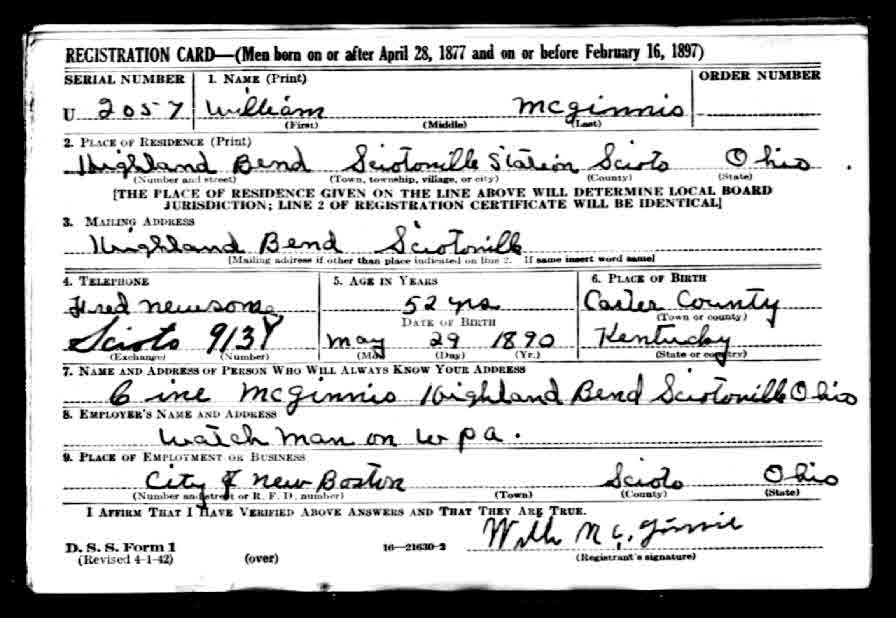 REGISTRATION CARD—(Men born on or after April 28, 1877 and on or before February 16, 1897)
SERIAL NUMBER 1. NAME (Print) ORDER NUMBER
U 2057 William McGinnis
(First) (Middle) (Last)
2. PLACE OF RESIDENCE (Print)
Highland Bend Sciotoville Station Scioto Ohio
(Number and street) (Town, township, village, or city) (County) (State)
[THE PLACE OF RESIDENCE GIVEN ON THE LINE ABOVE WILL DETERMINE LOCAL BOARD
JURISDICTION; LINE 2 OF REGISTRATION CERTIFICATE WILL BE IDENTICAL]
3. MAILING ADDRESS
Highland Bend Sciotoville
[Mailing address if other than place indicated on line 2. If same insert word same]
4. TELEPHONE 5. AGE IN YEARS 6. PLACE OF BIRTH
Fred Newsome 52 yrs Carter County
DATE OF BIRTH (Town or county)
Scioto 913Y May 29 1890 Kentucky
(Exchange) (Number) (Mo.) (Day) (Yr.) (State or country)
7. NAME AND ADDRESS OF PERSON WHO WILL ALWAYS KNOW YOUR ADDRESS
McGinnis Highland Bend Sciotoville Ohio
8. EMPLOYER'S NAME AND ADDRESS
Watch man on W P A.
9. PLACE OF EMPLOYMENT OR BUSINESS
City of New Boston Scioto Ohio
(Number and street or R. F. D. number) (Town) (County) (State)
I AFFIRM THAT I HAVE VERIFIED ABOVE ANSWERS AND THAT THEY ARE TRUE.
D. S. S. Form 1 16—21630-2
(Revised 4-1-42) (over) (Registrant's signature)